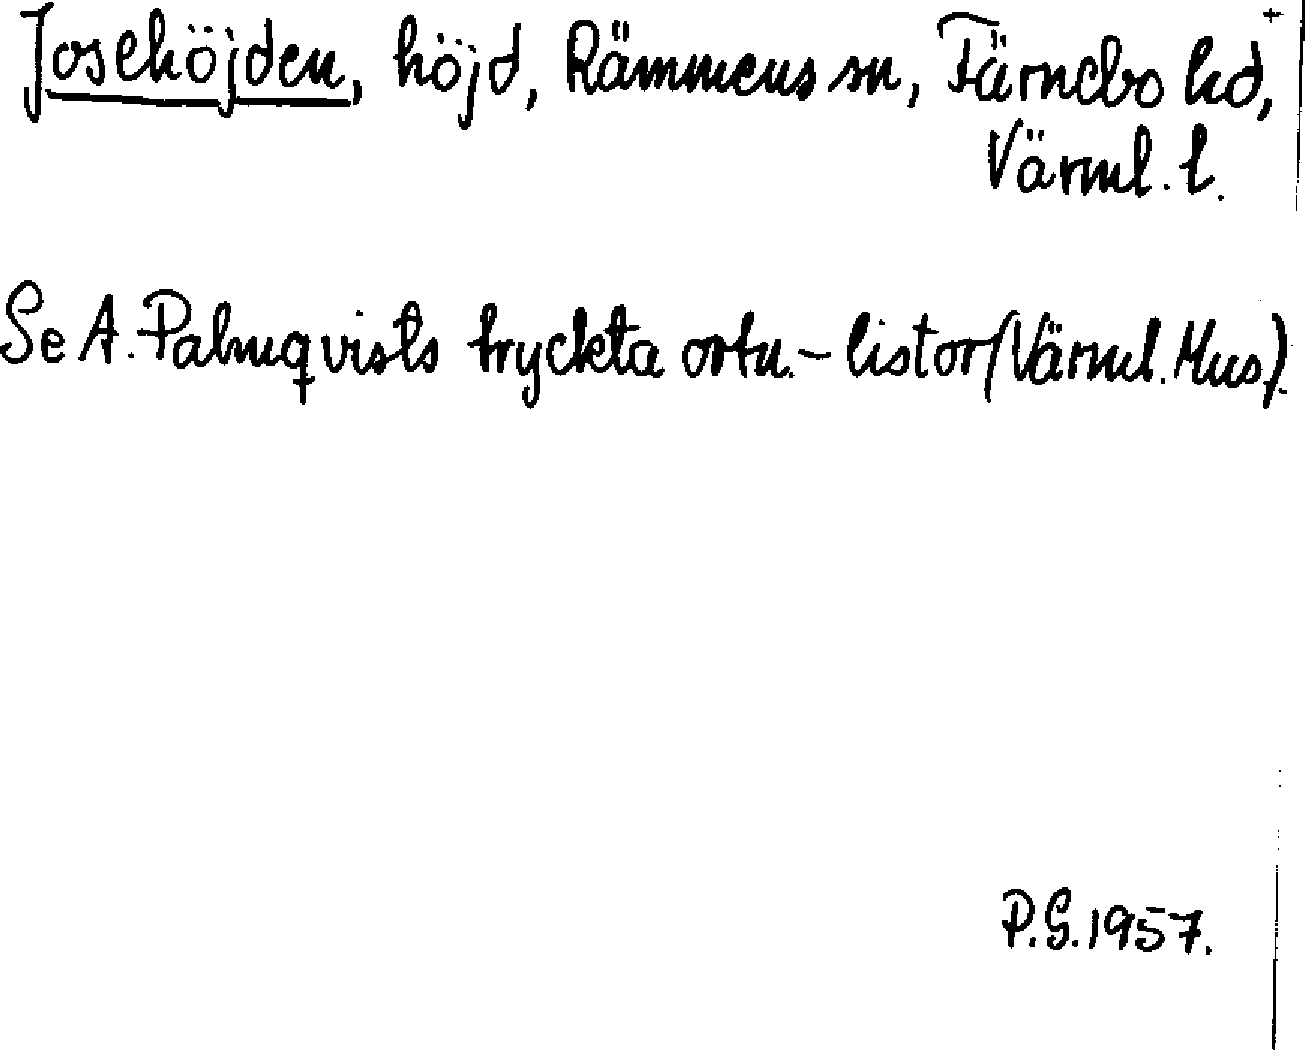 Josehöjden, höjd, Rämmens sn, Färnebo hd,
Värml. l.
Se A. Palmqvists tryckta ortn.-listor (Värml. Mus).
P.G. 1957.